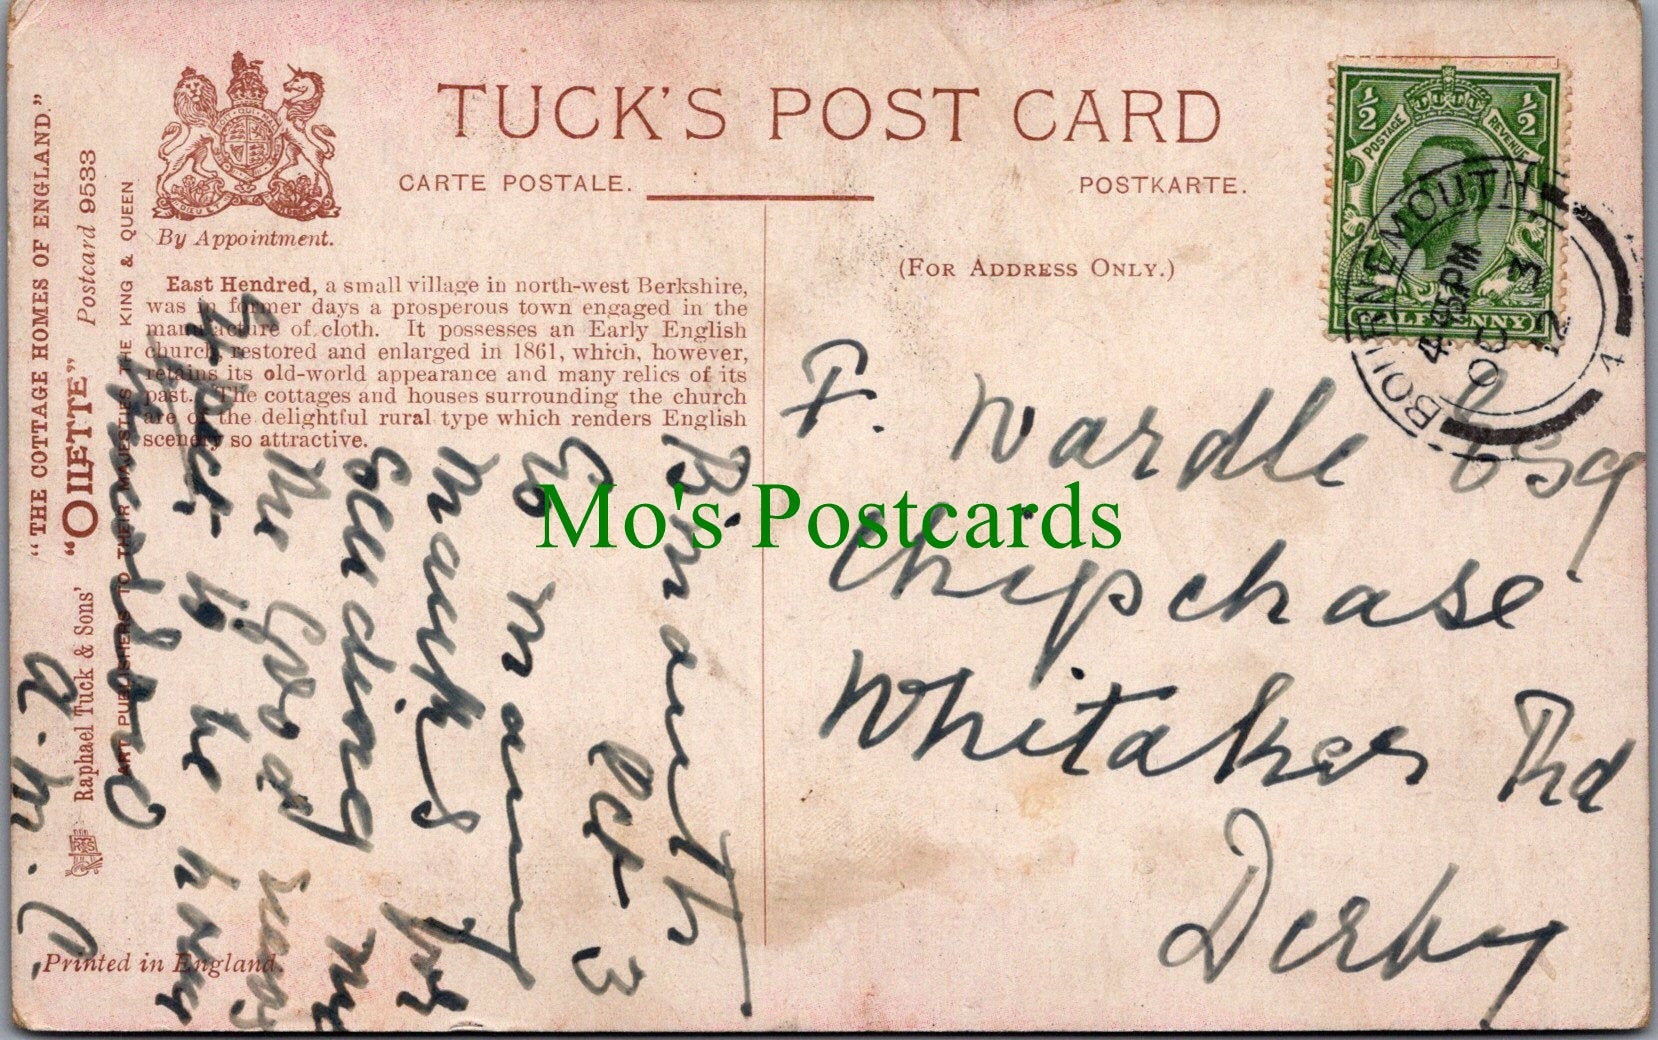 TUCK'S POST CARD
CARTE POSTALE.
POSTKARTE.
By Appointment.
(FOR ADDRESS ONLY.)
"THE COTTAGE HOMES OF ENGLAND."
"OILETTE" Postcard 9533
Raphael Tuck & Sons'
ART PUBLISHERS TO THEIR MAJESTIES THE KING & QUEEN
East Hendred, a small village in north-west Berkshire,
was in former days a prosperous town engaged in the
manufacture of cloth. It possesses an Early English
church, restored and enlarged in 1861, which, however,
retains its old-world appearance and many relics of its
past. The cottages and houses surrounding the church
are of the delightful rural type which renders English
scenery so attractive.
Printed in England.
1/2 1/2
POSTAGE REVENUE
HALFPENNY
BOURNEMOUTH
4.45PM
OC 3
12
F. Wardle Esq
Chipchase
Whitaker Rd
Derby
Oct 3
So many
thanks for
sending me
the Good news
to be home
A. M. C.
Mo's Postcards